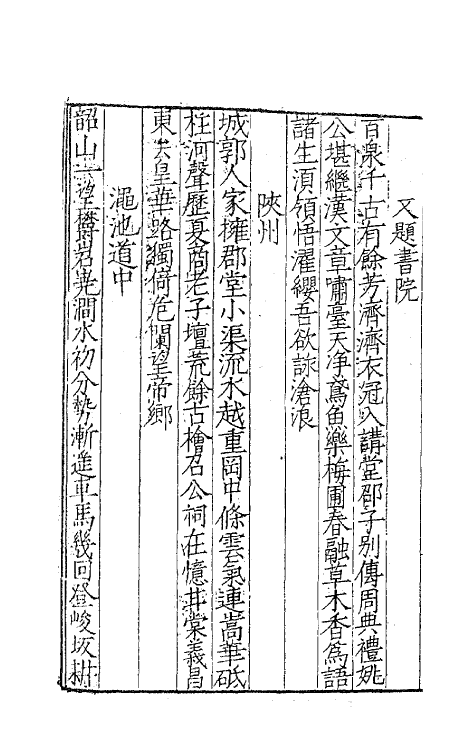 又題書院
百泉千古有餘芳濟濟衣冠入講堂邵子別傳周典禮姚
公堪繼漢文章嘯臺天净鳶魚樂梅圃春融草木香為語
諸生須領悟濯纓吾欲詠滄浪
陜州
城郭人家擁郡堂小渠流水越重岡中條雲氣連嵩華砥
柱河聲歷夏商老子壇荒餘古檜召公祠在憶甘棠義昌
東去皇華路獨倚危闌望帝鄉
澠池道中
韶山一望欝岩嶤澗水初分勢漸遥車馬幾回登峻坂耕